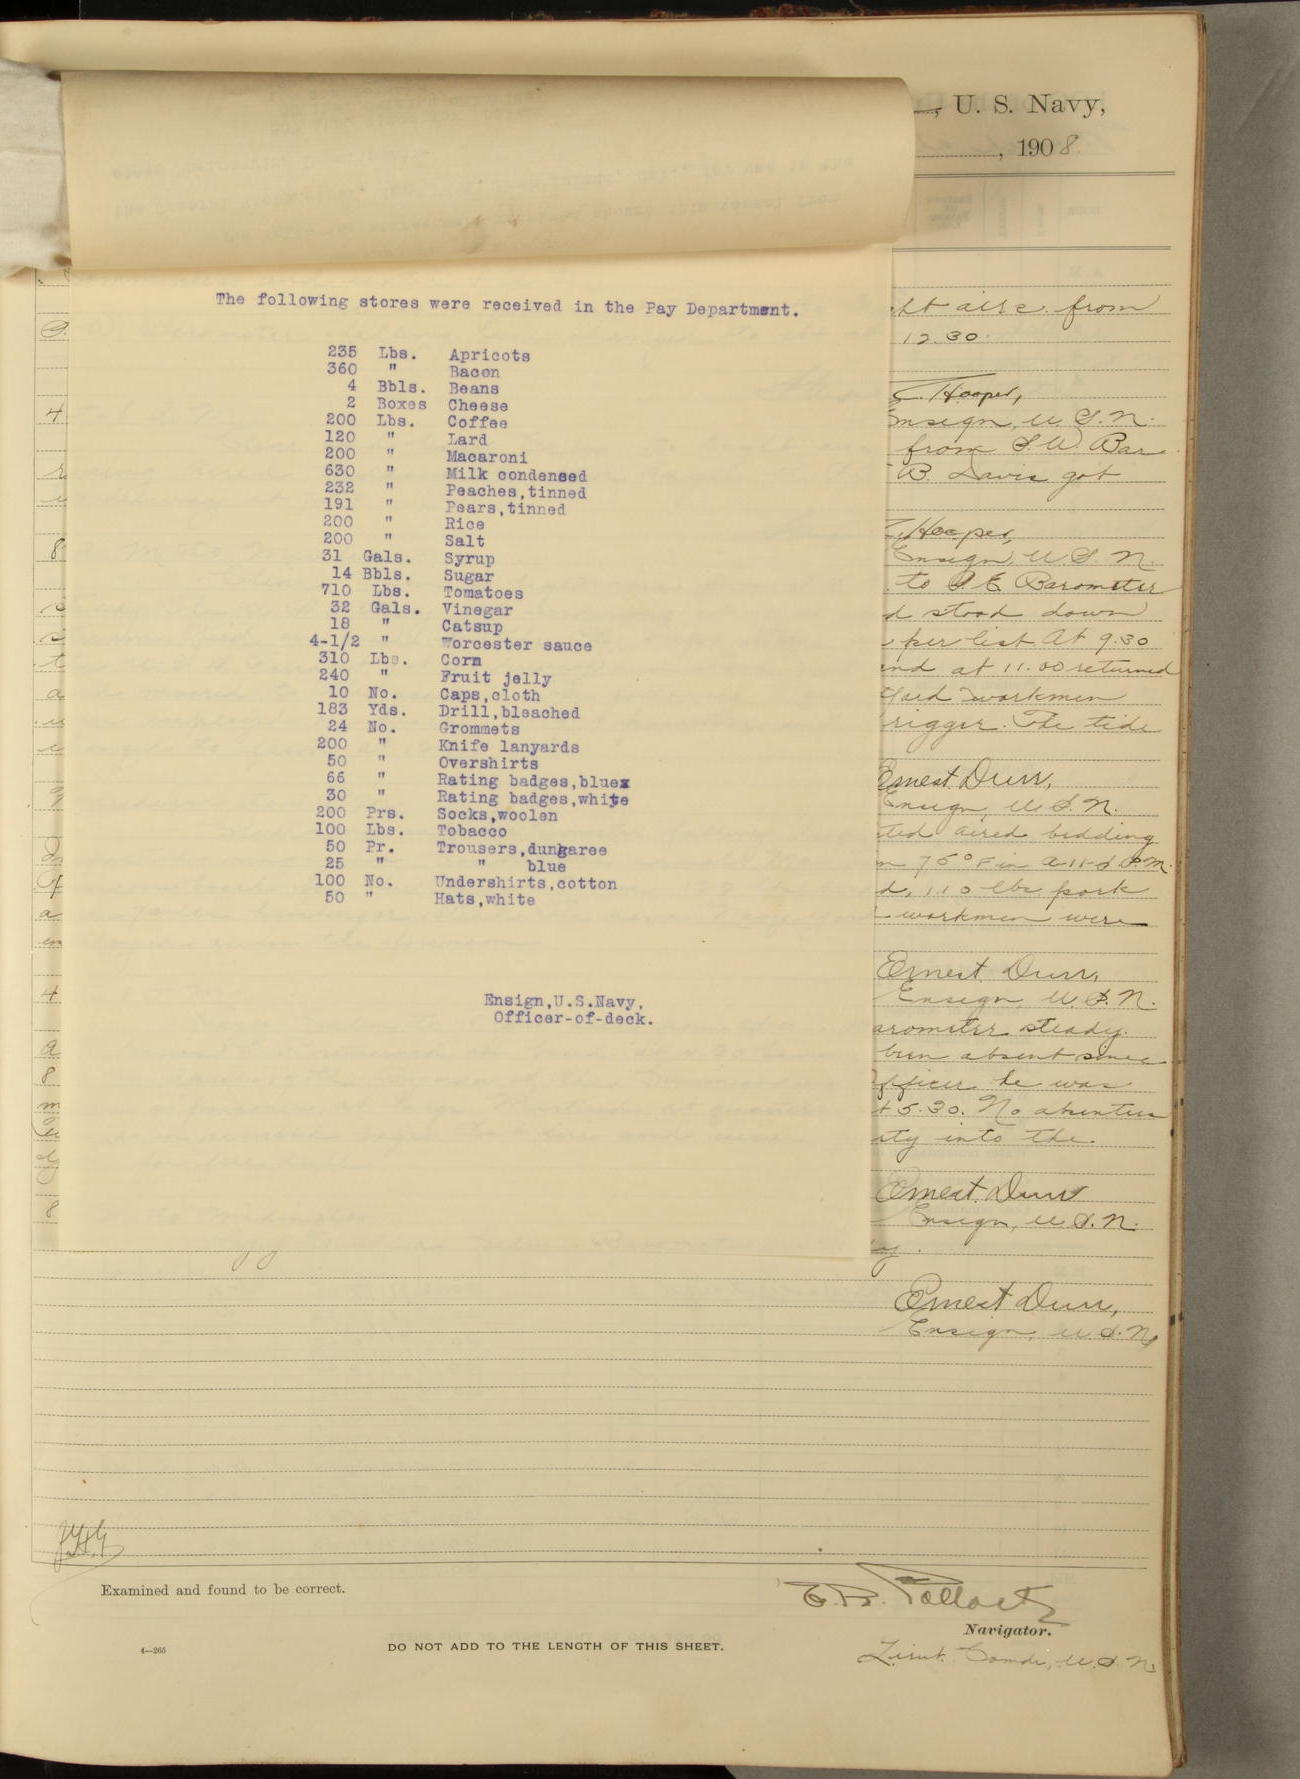 U. S. Navy,
, 1908.
The following stores were received in the Pay Department.
235 Lbs. Apricots
360 " Bacon
4 Bbls. Beans
2 Boxes Cheese
200 Lbs. Coffee
120 " Lard
200 " Macaroni
630 " Milk condensed
232 " Peaches,tinned
191 " Pears,tinned
200 " Rice
200 " Salt
31 Gals. Syrup
14 Bbls. Sugar
710 Lbs. Tomatoes
32 Gals. Vinegar
18 " Catsup
4-1/2 " Worcester sauce
310 Lbs. Corn
240 " Fruit jelly
10 No. Caps,cloth
183 Yds. Drill,bleached
24 No. Grommets
200 " Knife lanyards
50 " Overshirts
66 " Rating badges,blue
30 " Rating badges,white
200 Prs. Socks,woolen
100 Lbs. Tobacco
50 Pr. Trousers,dungaree
25 " " blue
100 No. Undershirts,cotton
50 " Hats,white
Ensign,U.S.Navy,
Officer-of-deck.
airs from
12.30.
Hooper,
Ensign, U.S.N.
from S.W. Bar
B. Davis got
Hooper,
Ensign, U.S.N.
to S.E. Barometer
stood down
per list At 9.30
and at 11.00 returned
Yard workmen
rigger. The tide
Ernest Durr,
Ensign, U.S.N.
aired bedding
75° F in
110 lbs pork
workmen were
Ernest Durr,
Ensign, U.S.N.
Barometer steady.
been absent since
Officer he was
5.30. No absentees
into the
Ernest Durr
Ensign, U.S.N.
Ernest Durr,
Ensign, U.S.N.
Examined and found to be correct.
Navigator.
4—265
DO NOT ADD TO THE LENGTH OF THIS SHEET.
Lieut. Comdr, U.S.N.